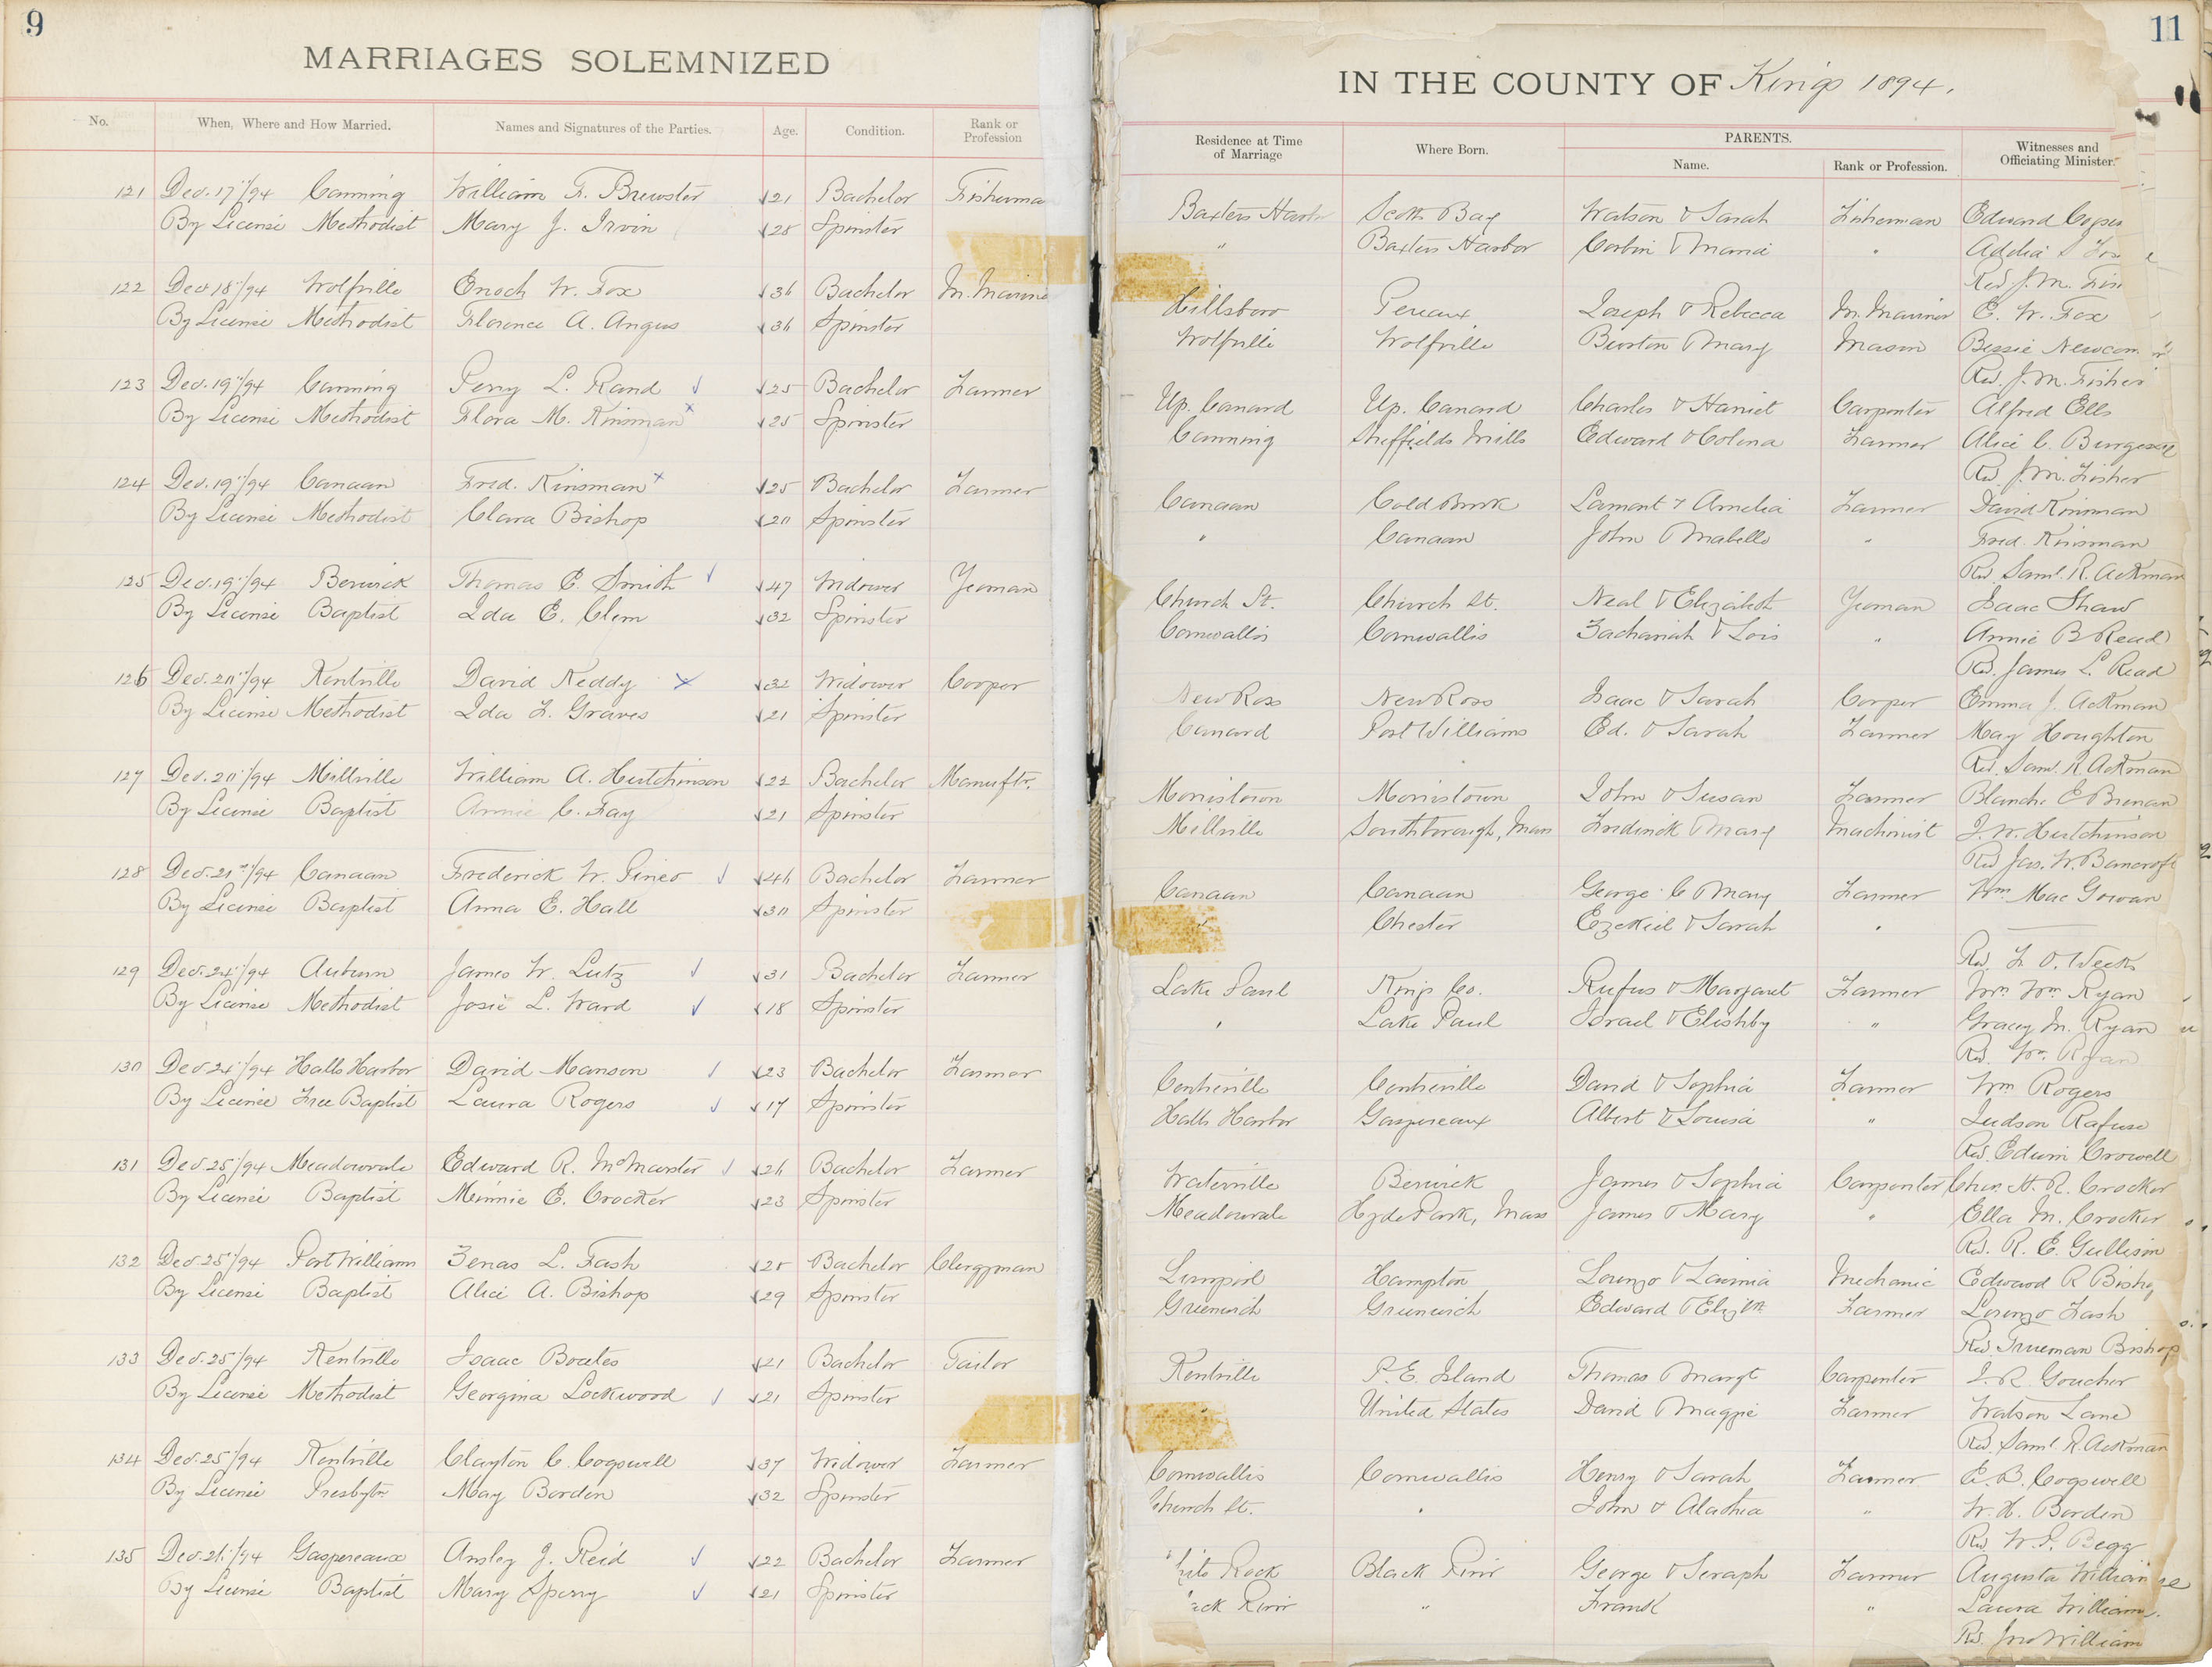 9
MARRIAGES SOLEMNIZED
No. When, Where and How Married. Names and Signatures of the Parties. Age. Condition. Rank or Profession
121 Dec. 17"/94 Canning William F. Brewster 21 Bachelor Fisherma
By License Methodist Mary J. Irvin Spinster
122 Dec 18"/94 Wolfville Enoch W. Fox 36 Bachelor M. Marine
By License Methodist Florence A. Angus 36 Spinster
123 Dec. 19"/94 Canning Perry L. Rand 25 Bachelor Farmer
By License Methodist Flora M. Kinsman 25 Spinster
124 Dec. 19"/94 Canaan Fred. Kinsman 25 Bachelor Farmer
By License Methodist Clara Bishop 20 Spinster
125 Dec. 19"/94 Berwick Thomas E. Smith 47 Widower Yeoman
By License Baptist Ida E. Clem 32 Spinster
126 Dec. 20"/94 Kentville David Keddy 32 Widower Cooper
By License Methodist Ida F. Graves 21 Spinster
127 Dec. 20"/94 Millville William A. Hutchinson 22 Bachelor Manuftr.
By License Baptist Annie C. Fay 21 Spinster
128 Dec. 21st/94 Canaan Frederick W. Pineo 46 Bachelor Farmer
By License Baptist Anna E. Hall 30 Spinster
129 Dec. 24"/94 Auburn James W. Lutz 31 Bachelor Farmer
By License Methodist Josie L. Ward 18 Spinster
130 Dec 24"/94 Halls Harbor David Manson 23 Bachelor Farmer
By License Free Baptist Laura Rogers 17 Spinster
131 Dec 25"/94 Meadowvale Edward R. McMaster 26 Bachelor Farmer
By License Baptist Minnie E. Crocker 23 Spinster
132 Dec 25"/94 Port Williams Zenas L. Fash Bachelor Clergyman
By License Baptist Alice A. Bishop 29 Spinster
133 Dec. 25"/94 Kentville Isaac Boates 21 Bachelor Tailor
By License Methodist Georgina Lockwood 21 Spinster
134 Dec. 25"/94 Kentville Clayton C. Cogswell 37 Widower Farmer
By License Presbytn May Borden 32 Spinster
135 Dec. 26"/94 Gaspereaux Ansley J. Reid 22 Bachelor Farmer
By License Baptist Mary Sperry 21 Spinster
11
IN THE COUNTY OF Kings 1894.
Residence at Time of Marriage Where Born. PARENTS. Name. Rank or Profession. Witnesses and Officiating Minister.
Baxters Harb Scotts Bay Watson & Sarah Fisherman Edward
" Baxters Harbor Corbin & Maria " Addia S
Rev J. M. Fis
Hillsboro Pereaux Joseph & Rebecca M. Mariner E. W. Fox
Wolfville Wolfville Burton & Mary Mason Bessie Newcom
Rev. J. M. Fisher
Up. Canard Up. Canard Charles & Harriet Carpenter Alfred Ells
Canning Sheffields Mills Edward & Colena Farmer Alice C. Burgess
Rev. J. M. Fisher
Canaan Cold Brook Lamont & Amelia Farmer David Kinsman
" Canaan John & Mabelle " Fred. Kinsman
Rev. Saml. R. Ackman
Church St. Church St. Neal & Elizabeth Yeoman Isaac Shaw
Cornwallis Cornwallis Zachariah & Lois " Annie B Read
Rev. James L. Read
New Ross New Ross Isaac & Sarah Cooper Emma J. Ackman
Canard Port Williams Ed. & Sarah Farmer May Houghton
Rev. Saml. R. Ackman
Morristown Morristown John & Susan Farmer Blanche E Brenan
Millville Southborough, Mass Fredirick & Mary Machinist J. W. Hutchinson
Rev Jas. W. Bancroft
Canaan Canaan George C & Mary Farmer Wm. Mac Gowan
" Chester Ezekiel & Sarah "
Rev. F. O. Weeks
Lake Paul Kings Co. Rufus & Margaret Farmer Mrs. Wm Ryan
" Lake Paul Israel & Elishby " Gracey M. Ryan
Rev. Wm. Ryan
Centreville Centreville David & Sophia Farmer Wm Rogers
Halls Harbor Gaspereaux Albert & Louisa " Judson Rafuse
Rev. Edwin Crowell
Waterville Berwick James & Sophia Carpenter Chas. H. R. Crocker
Meadowvale Hyde Park, Mass James & Mary " Ella M. Crocker
Rev. R. E. Gullison
Liverpool Hampton Lorenzo & Lavinia Mechanic Edward R Bishop
Greenwich Greenwich Edward & Elizth Farmer Lorenzo Fash
Rev Trueman Bishop
Kentville P. E. Island Thomas & Margt Carpenter J. R. Goucher
United States David & Maggie Farmer Watson Lane
Rev. Saml. R. Ackman
Cornwallis Cornwallis Henry & Sarah Farmer E. B. Cogswell
Church St. " John & Alathea " W. H. Borden
Rev W. P. Begg
hite Rock Black River George & Seraph Farmer Augusta William
ack River " Frank " Laura Williams.
Rev. Jno William